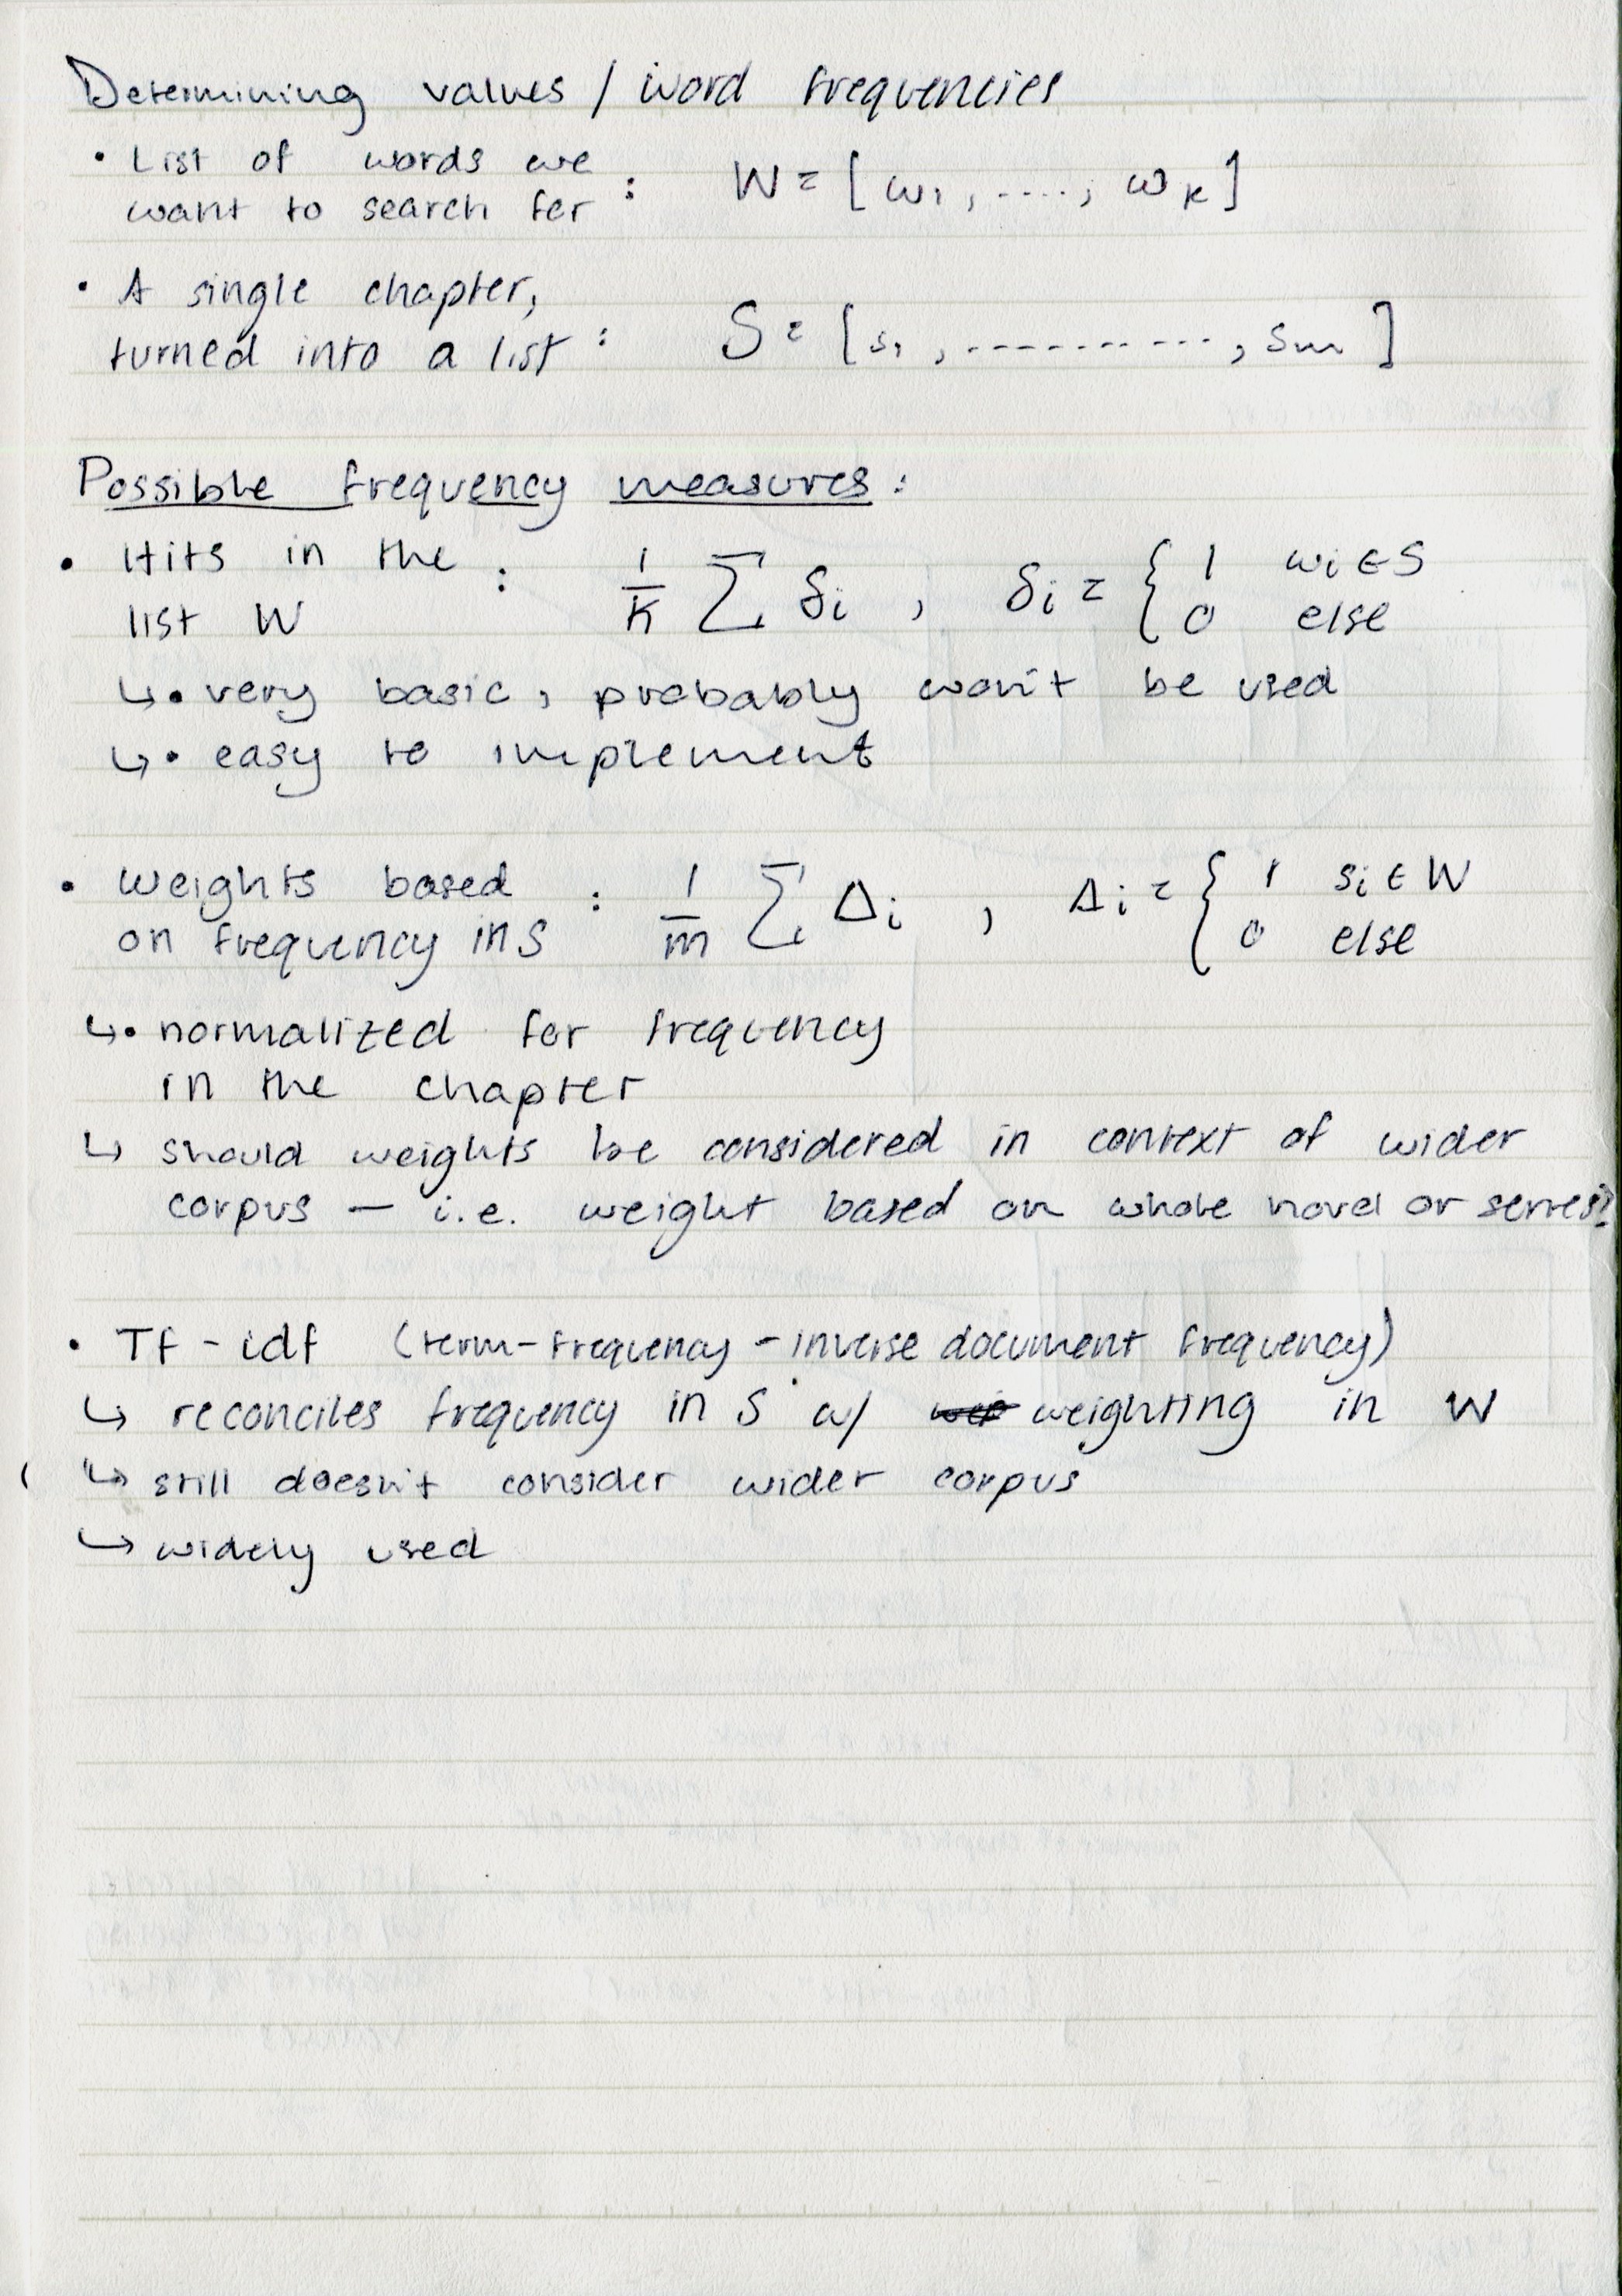 Determining values / word frequencies
• List of words we
want to search for : W = [ w1, ...., wk ]
• A single chapter,
turned into a list : S = [ s1, ..........., sm ]
Possible frequency measures :
• Hits in the
list W : 1/k ∑ δi , δi = { 1 wi ∈ S
0 else
↳• very basic, probably won't be used
↳• easy to implement
• weights based
on frequency in S : 1/m ∑ Δi , Δi = { 1 si ∈ W
0 else
↳• normalized for frequency
in the chapter
↳ should weights be considered in context of wider
corpus — i.e. weight based on whole novel or series?
• Tf - idf (term-frequency - inverse document frequency)
↳ reconciles frequency in S w/ weighting in W
↳ still doesn't consider wider corpus
↳ widely used